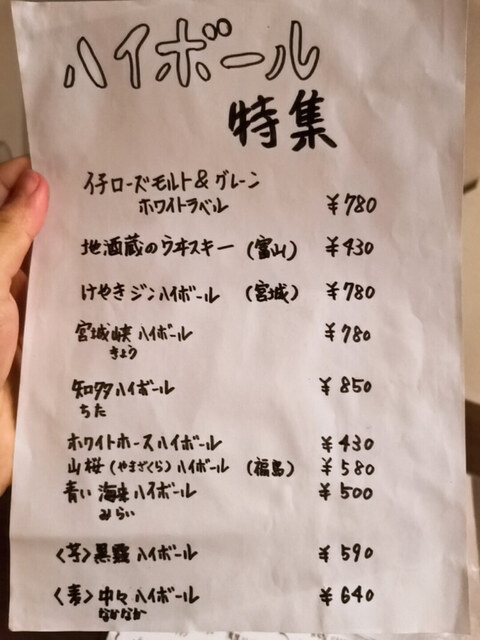 ハイボール
特集
イチローズモルト&グレーン
ホワイトラベル ¥780
地酒蔵のウヰスキー (富山) ¥430
けやきジンハイボール (宮城) ¥780
宮城峡ハイボール ¥780
きょう
知多ハイボール ¥850
ちた
ホワイトホースハイボール ¥430
山桜(やまざくら)ハイボール (福島) ¥580
青い海来ハイボール ¥500
みらい
<芋>黒霧ハイボール ¥590
<麦>中々ハイボール ¥640
なかなか